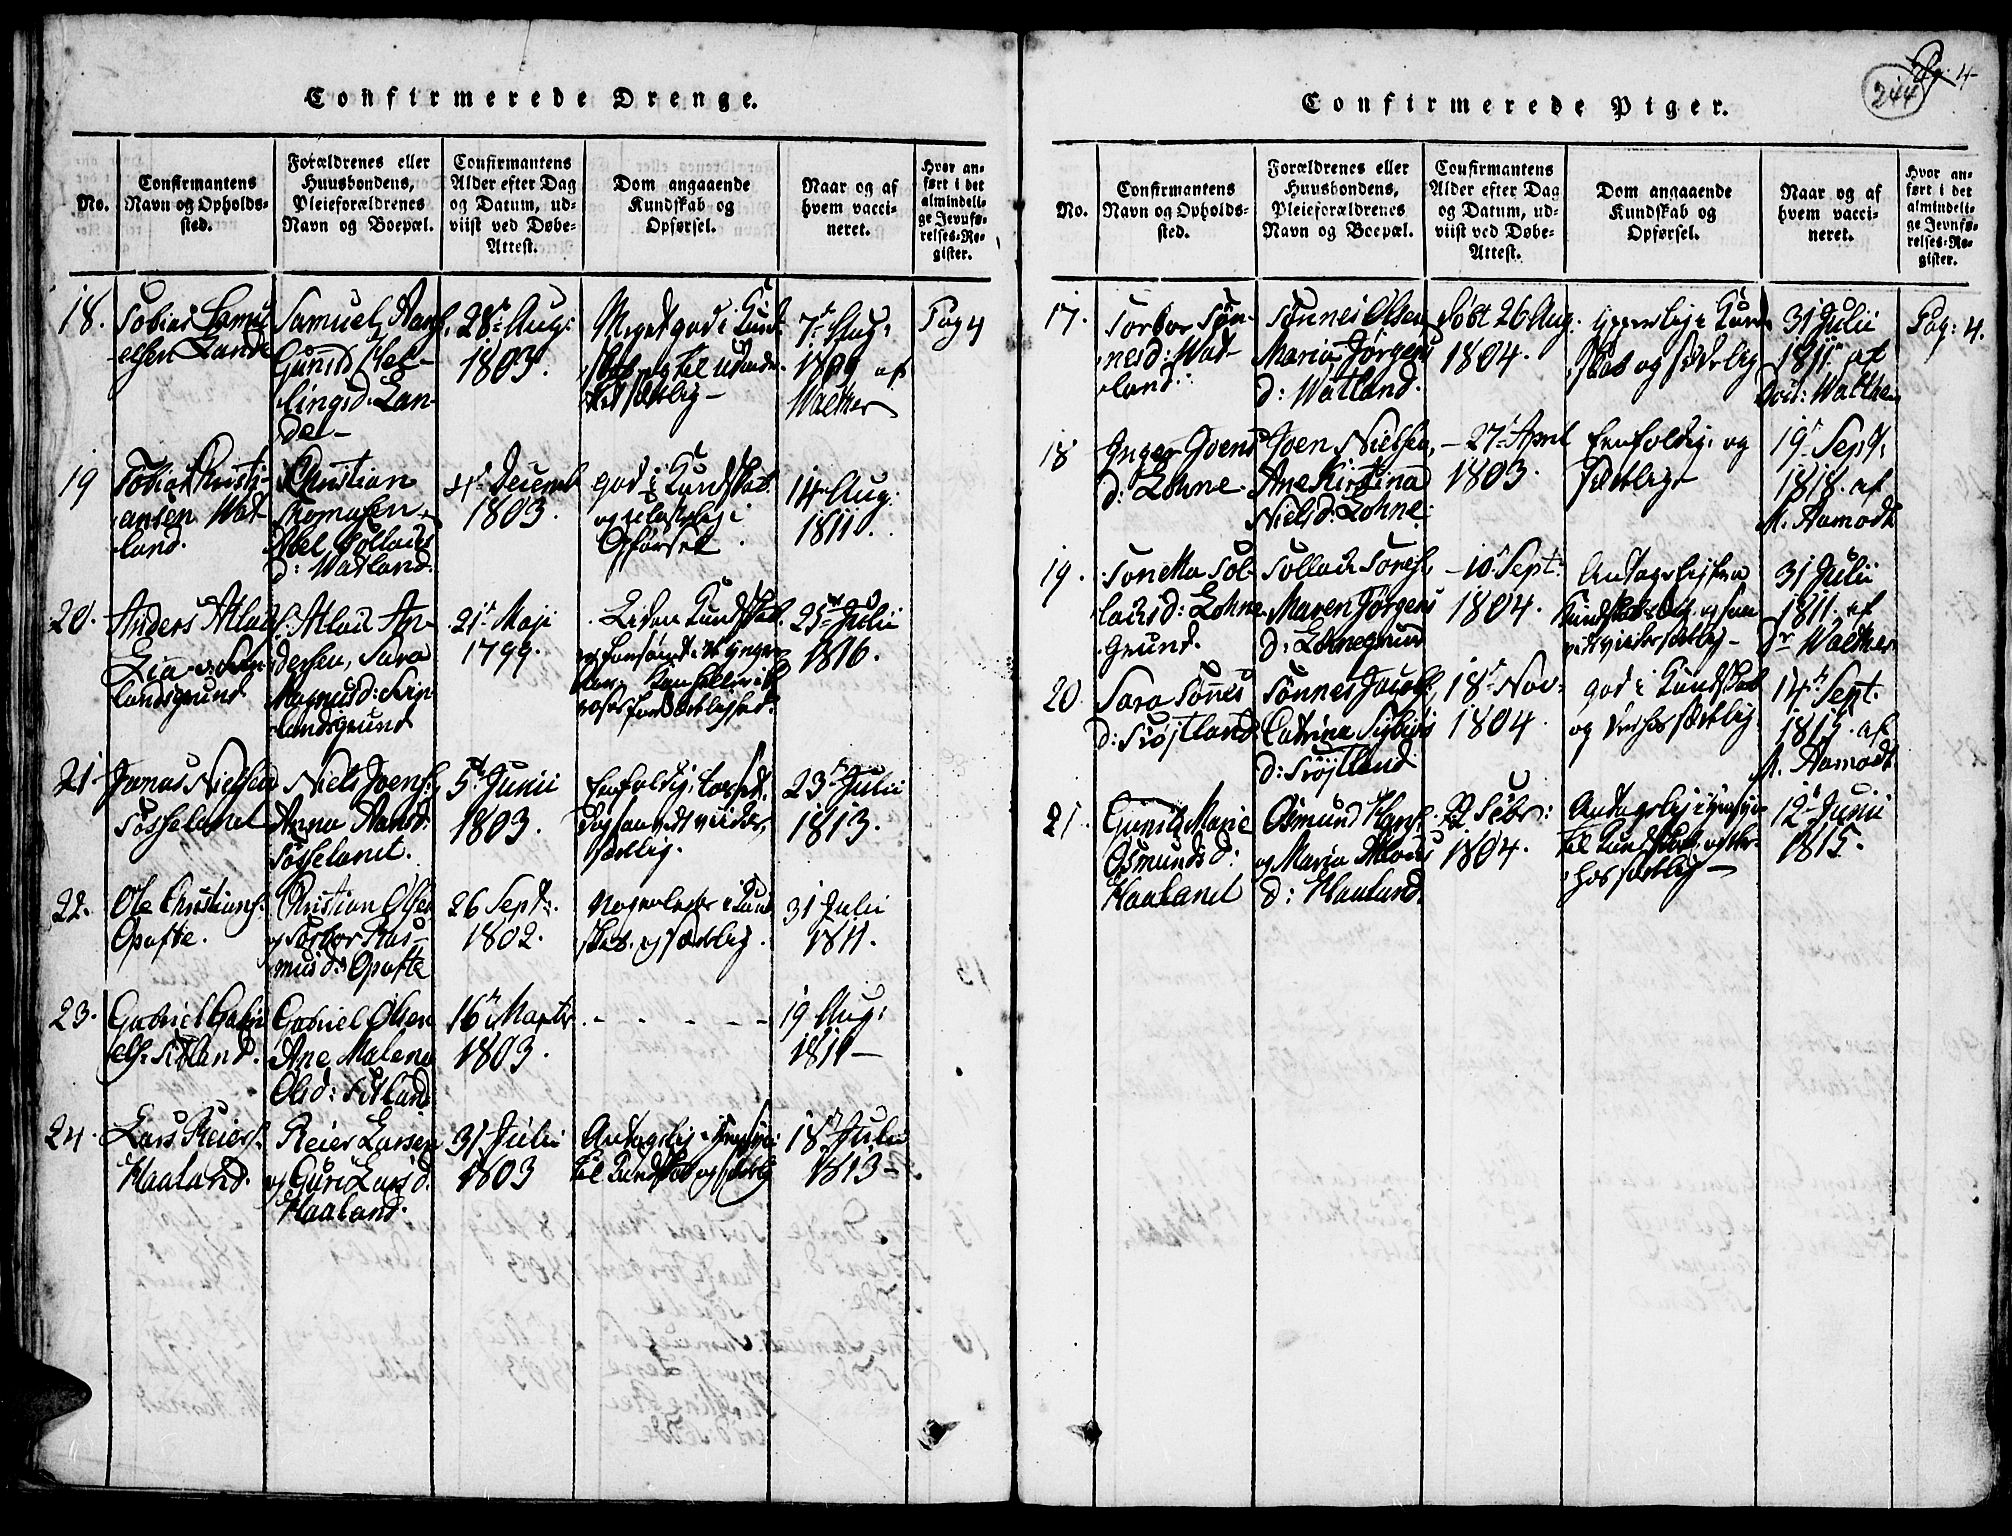 Pag. 4
244
Confirmerede Drenge.
No.
Confirmantens
Navn og Opholds-
sted.
Forældrenes eller
Huusbondens,
Pleieforældrenes
Navn og Boepæl.
Confirmantens
Alder efter Dag
og Datum, ud-
viist ved Døbe-
Attest.
Dom angaaende
Kundskab og
Opførsel.
Naar og af
hvem vacci-
neret.
Hvor an-
ført i det
almindeli-
ge Jevnfø-
relses-Re-
gister.
18.
Tobias Samu
elsen Lande
Samuel
Gunild
lingsd: Lan-
del-
28de Aug:
1803.
Meget god i Kund
7de Aug:
1809 af
Walther
Pag 4
19
Tobias Christi-
ansen Wat-
land.
Christian
Thomasen,
Abel Tollachs
d: Watland.
Decemb
1803.
god i Kundskab
Opførsel.
14de Aug:
1811.
20.
Anders Atlac
landsgrund
Atlac An-
dersen, Sara
Magnusd:
landsgrund
21de Maji
1799.
Liden Kundskab
25de Julii
1816.
21.
Jonas Nielsen
Tosseland
Niels Joens:
Anna Aansd:
Tosseland.
5te Junii
1803.
Eenfoldig,
sædelig.
23de Julii
1813.
22.
Ole Christians:
Opofte.
Christian Olsen
og Torbor Ras-
musd: Opofte
26 Septr.
1802.
skab og sædelig.
31 Julii
1811.
23.
Gabriel Gabri
els: Sitland.
Gabriel Olsen
Ane Malene
Olsd: Sitland
16de Martz
1803.
- - - - -
19 Aug:
1811-
24.
Lars Reiers:
Haaland.
Reier Larsen
og Guri Larsd.
Haaland.
31 Julii
1803
Antagelig i Hensyn
til Kundskab og sædelig
18de Julii
1813-
Confirmerede Piger.
No.
Confirmantens
Navn og Opholds-
sted.
Forældrenes eller
Huusbondens,
Pleieforældrenes
Navn og Boepæl.
Confirmantens
Alder efter Dag
og Datum, ud-
viist ved Døbe-
Attest.
Dom angaaende
Kundskab og
Opførsel.
Naar og af
hvem vacci-
neret.
Hvor an-
ført i det
almindeli-
ge Jevnfø-
relses-Re-
gister.
17.
Torbor Tøn-
nesd: Wat-
land.
Tønnes Olsen
Maria Jørgens
d: Watland.
Født 26 Aug:
1804.
Ypperlig i Kund
skab og sædelig
31 Julii
1811 af
Doct: Walther
Pag: 4.
18
Inger Joens
d: Lohne.
Joen Nielsen,
Ane Kirstina
Nielsd: Lohne.
- 27de April
1803.
Eenfoldig og
sædelig
19de Sept:
1818. af
M. Aamodt
19.
Tonetta Tol-
lachsd: Lohne
Grund.
Tollach Tones:
Maren Jørgens
d: Lohnegrund
- 10de Septr:
1804.
31 Julii
1811. af
Dr Walther
20
Sara Tønnes
d: Trøjtland
Tønnes Jacobs:
Catrine Sigbiøs
d: Trøjtland
18de Nov:
1804
god i Kundskab
og derhos sædelig.
14de Sept.
1815. af
M. Aamodt
21.
Gunild Marie
Osmundsd:
Haaland
Osmund Hans:
og Maria
d: Haaland.
Febr:
1804.
Antagelig i Hensyn
til Kundskab, og der-
hos sædelig-
12te Junii
1815.